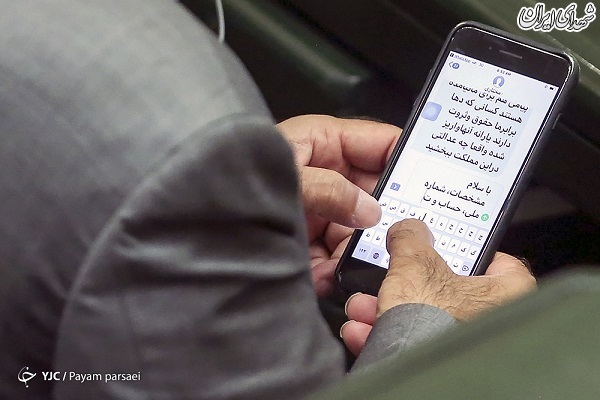 شهدای ایران
8:52 PM
مختاری
هستند کسانی که دهها
برابرما حقوق وثروت
دارند یارانه آنهاواریز
شده واقعا چه عدالتی
دراین مملکت ببخشید
با سلام
مشخصات، شماره
ملی، حساب و ت
YJC / Payam parsaei